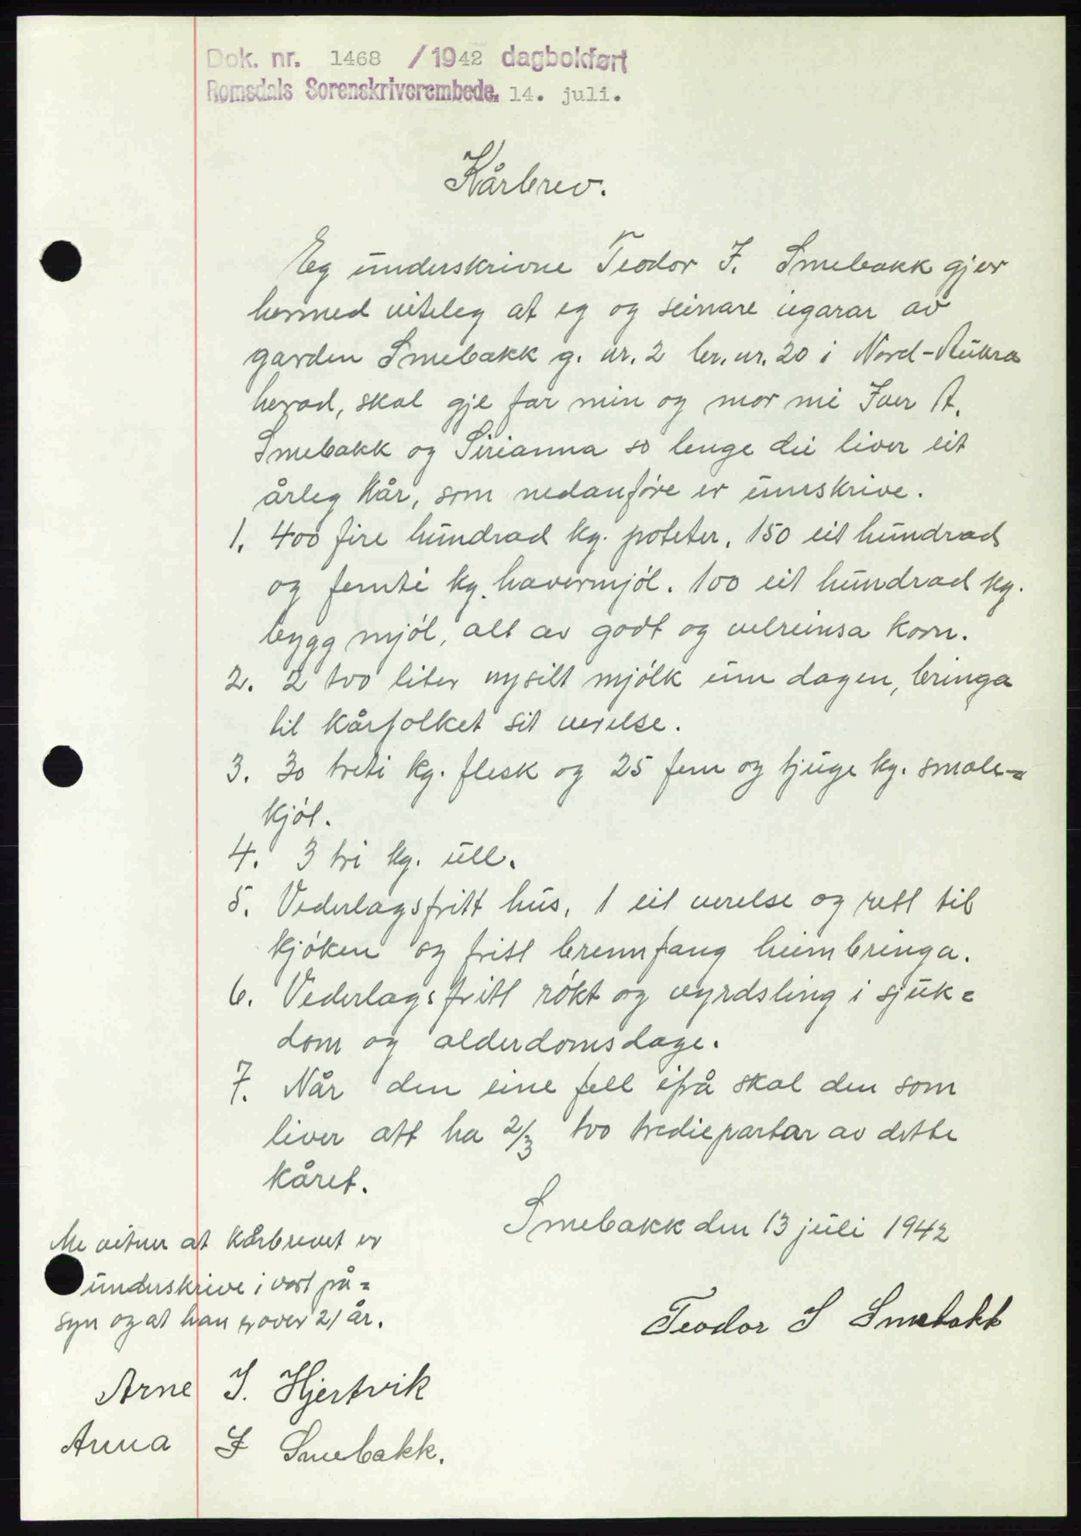 Dok. nr. 1468 /1942 dagbokført
Romsdals Sorenskriverembede. 14. juli.
Kårbrev.
Eg underskrivne Teodor I. Smebakk gjer
hermed viteleg at eg og seinare eigarar av
garden Smebakk g. nr. 2 br. nr. 20 i Nord-Aukra
herad, skal gje far min og mor mi Iver A.
Smebakk og Sirianna so lenge dei liver eit
årleg kår, som nedanføre er umskrive.
1. 400 fire hundrad kg. poteter, 150 eit hundrad
og femti kg. havermjöl. 100 eit hundrad kg.
bygg mjöl, alt av godt og velreinsa korn.
2. 2 tvo liter nysilt mjölk um dagen, bringa
til kårfolket sit verelse.
3. 30 treti kg. flesk og 25 fem og tjuge kg. smale=
kjöt.
4. 3 tri kg. ull.
5. Vederlagsfritt hus, 1 eit verelse og rett til
kjöken og fritt brennfang heimbringa.
6. Vederlagsfritt rökt og vyrdsling i sjuk=
dom og alderdomsdage.
7. Når den eine fell ifrå skal den som
liver att ha 2/3 tvo trediepartar av dette
kåret.
Smebakk den 13 juli 1942
Teodor I Smebakk
Me vitner at kårbrevet er
underskrive i vort på=
syn og at han er over 21 år.
Arne I. Hjertvik
Anna I Smebakk.